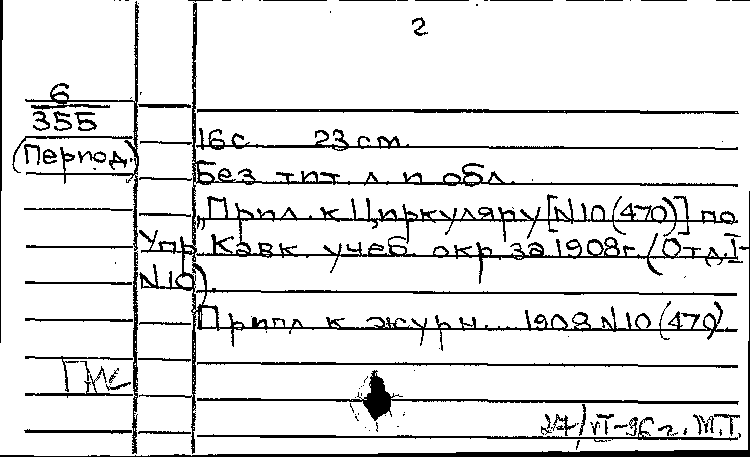 2
6
355
(Период.)
16 с. 23 см.
Без тит. л. и обл.
„Прил. к Циркуляру [N10 (470)] по
Упр. Кавк. учеб. окр. за 1908 г. (Отд. I-
N10).
Прил. к журн. 1908 N10 (470)
27/VI-96 г. М.Т.